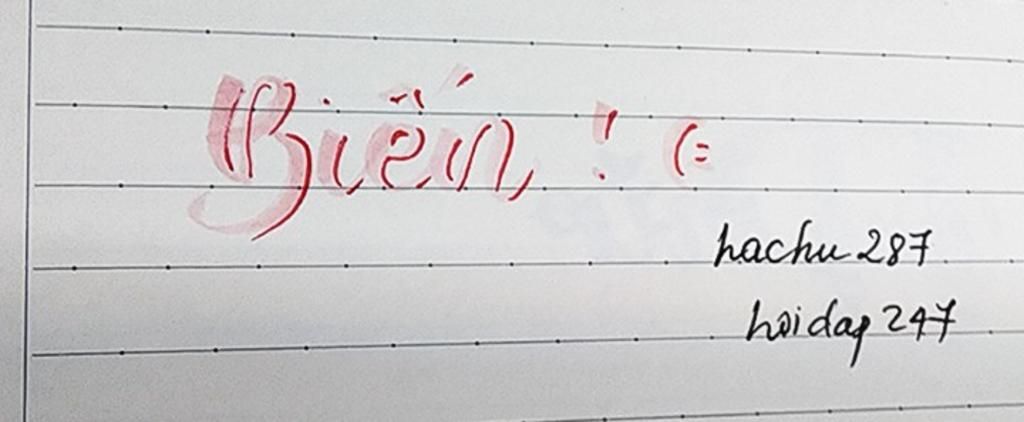 Biến ! (=
hachu 287
hoidap 247